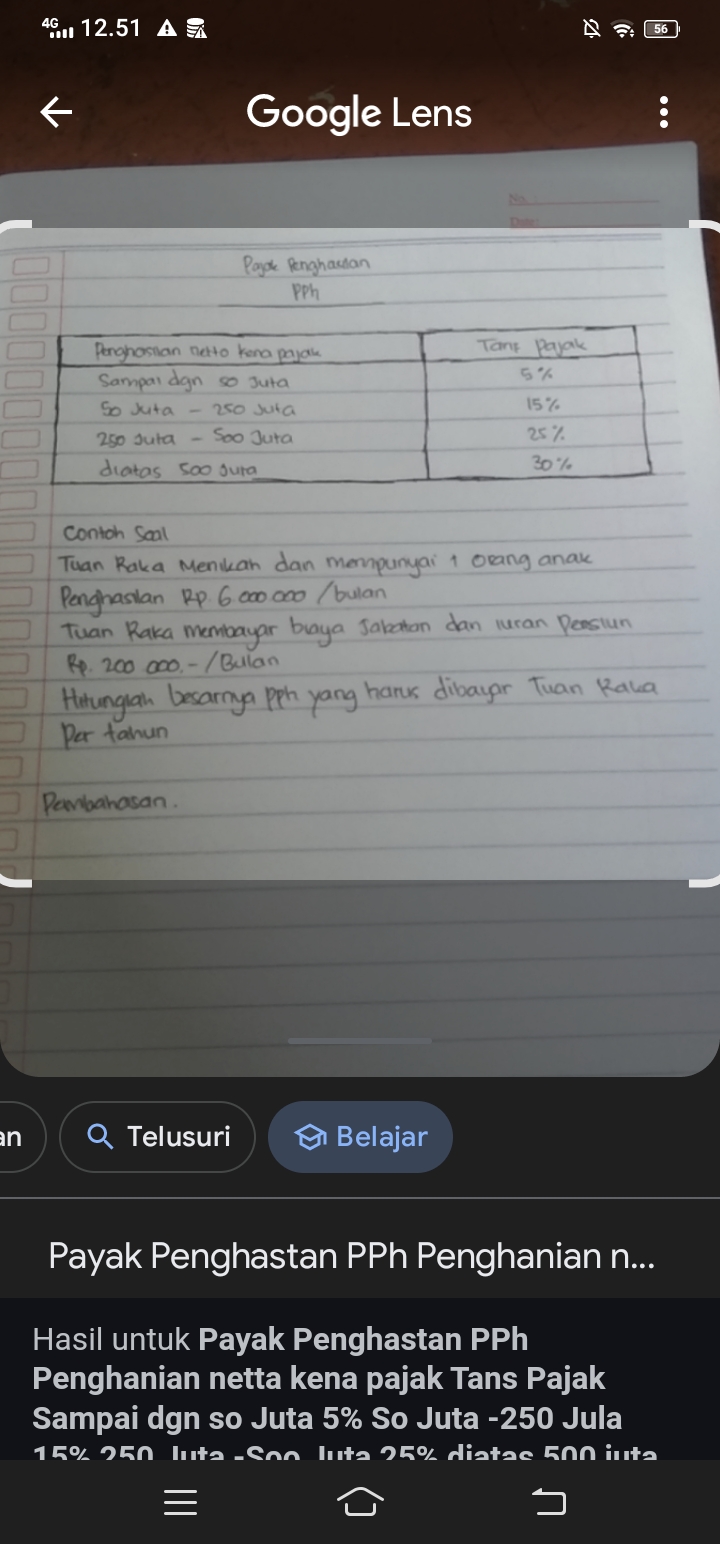 4G 12.51 56
Google Lens
No. :
Date:
Pajak Penghasilan
PPh
Penghasilan netto kena pajak Tarif Pajak
Sampai dgn 50 Juta 5%
50 Juta - 250 Juta 15%
250 Juta - 500 Juta 25%
diatas 500 Juta 30%
Contoh Soal
Tuan Raka Menikah dan mempunyai 1 orang anak
Penghasilan Rp. 6.000 000 /bulan
Tuan Raka membayar biaya Jabatan dan iuran Pensiun
Rp. 200 000,- /Bulan
Hitunglah besarnya pph yang harus dibayar Tuan Raka
Per tahun
Pembahasan.
an Telusuri Belajar
Payak Penghastan PPh Penghanian n...
Hasil untuk Payak Penghastan PPh
Penghanian netta kena pajak Tans Pajak
Sampai dgn so Juta 5% So Juta -250 Jula
15% 250 Juta -Soo Juta 25% diatas 500 juta